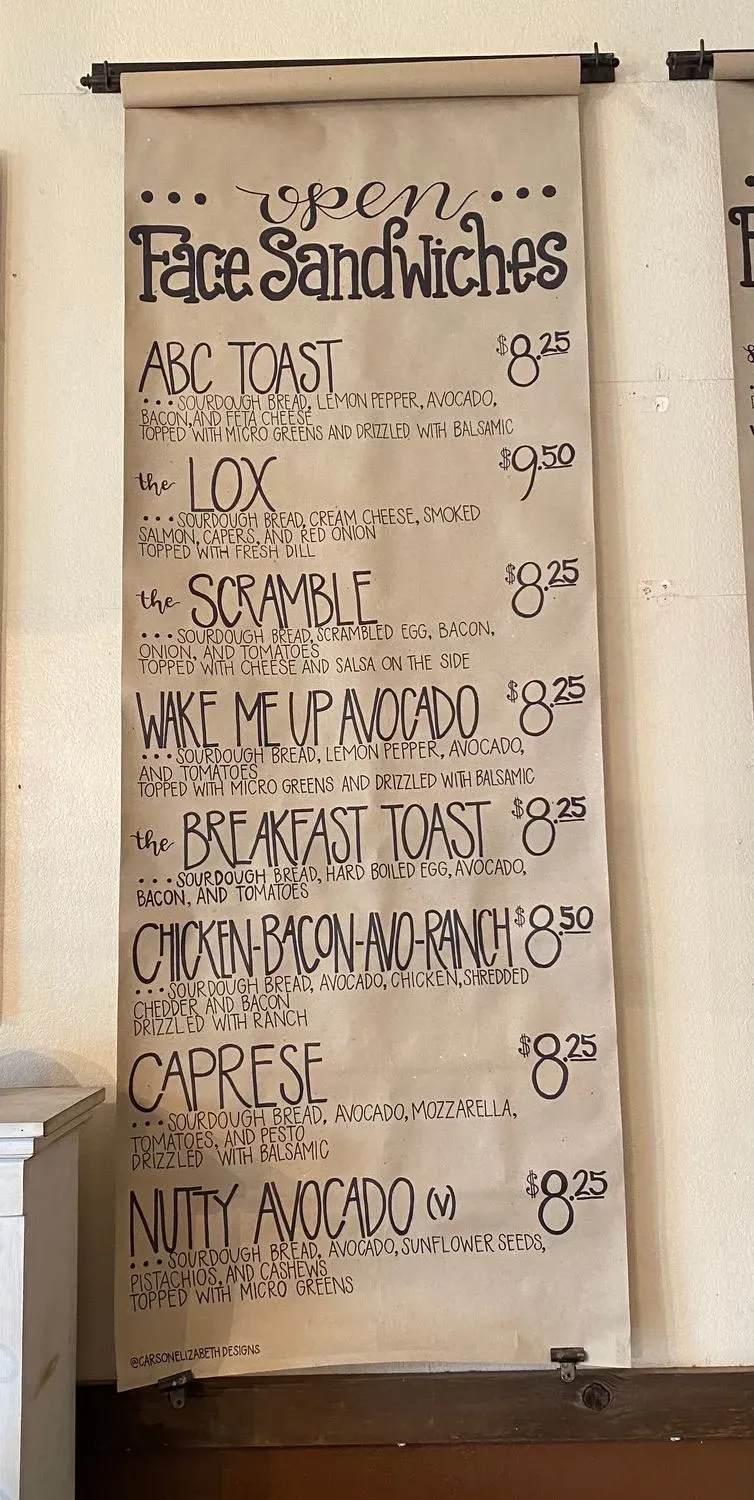 ••• open •••
Face Sandwiches
ABC TOAST $8.25
•••SOURDOUGH BREAD, LEMON PEPPER, AVOCADO,
BACON, AND FETA CHEESE
TOPPED WITH MICRO GREENS AND DRIZZLED WITH BALSAMIC
the LOX $9.50
•••SOURDOUGH BREAD, CREAM CHEESE, SMOKED
SALMON, CAPERS, AND RED ONION
TOPPED WITH FRESH DILL
the SCRAMBLE $8.25
•••SOURDOUGH BREAD, SCRAMBLED EGG, BACON,
ONION, AND TOMATOES
TOPPED WITH CHEESE AND SALSA ON THE SIDE
WAKE ME UP AVOCADO $8.25
•••SOURDOUGH BREAD, LEMON PEPPER, AVOCADO,
AND TOMATOES
TOPPED WITH MICRO GREENS AND DRIZZLED WITH BALSAMIC
the BREAKFAST TOAST $8.25
•••SOURDOUGH BREAD, HARD BOILED EGG, AVOCADO,
BACON, AND TOMATOES
CHICKEN-BACON-AVO-RANCH $8.50
•••SOURDOUGH BREAD, AVOCADO, CHICKEN, SHREDDED
CHEDDER AND BACON
DRIZZLED WITH RANCH
CAPRESE $8.25
•••SOURDOUGH BREAD, AVOCADO, MOZZARELLA,
TOMATOES, AND PESTO
DRIZZLED WITH BALSAMIC
NUTTY AVOCADO (V) $8.25
•••SOURDOUGH BREAD, AVOCADO, SUNFLOWER SEEDS,
PISTACHIOS, AND CASHEWS
TOPPED WITH MICRO GREENS
@CARSONELIZABETHDESIGNS